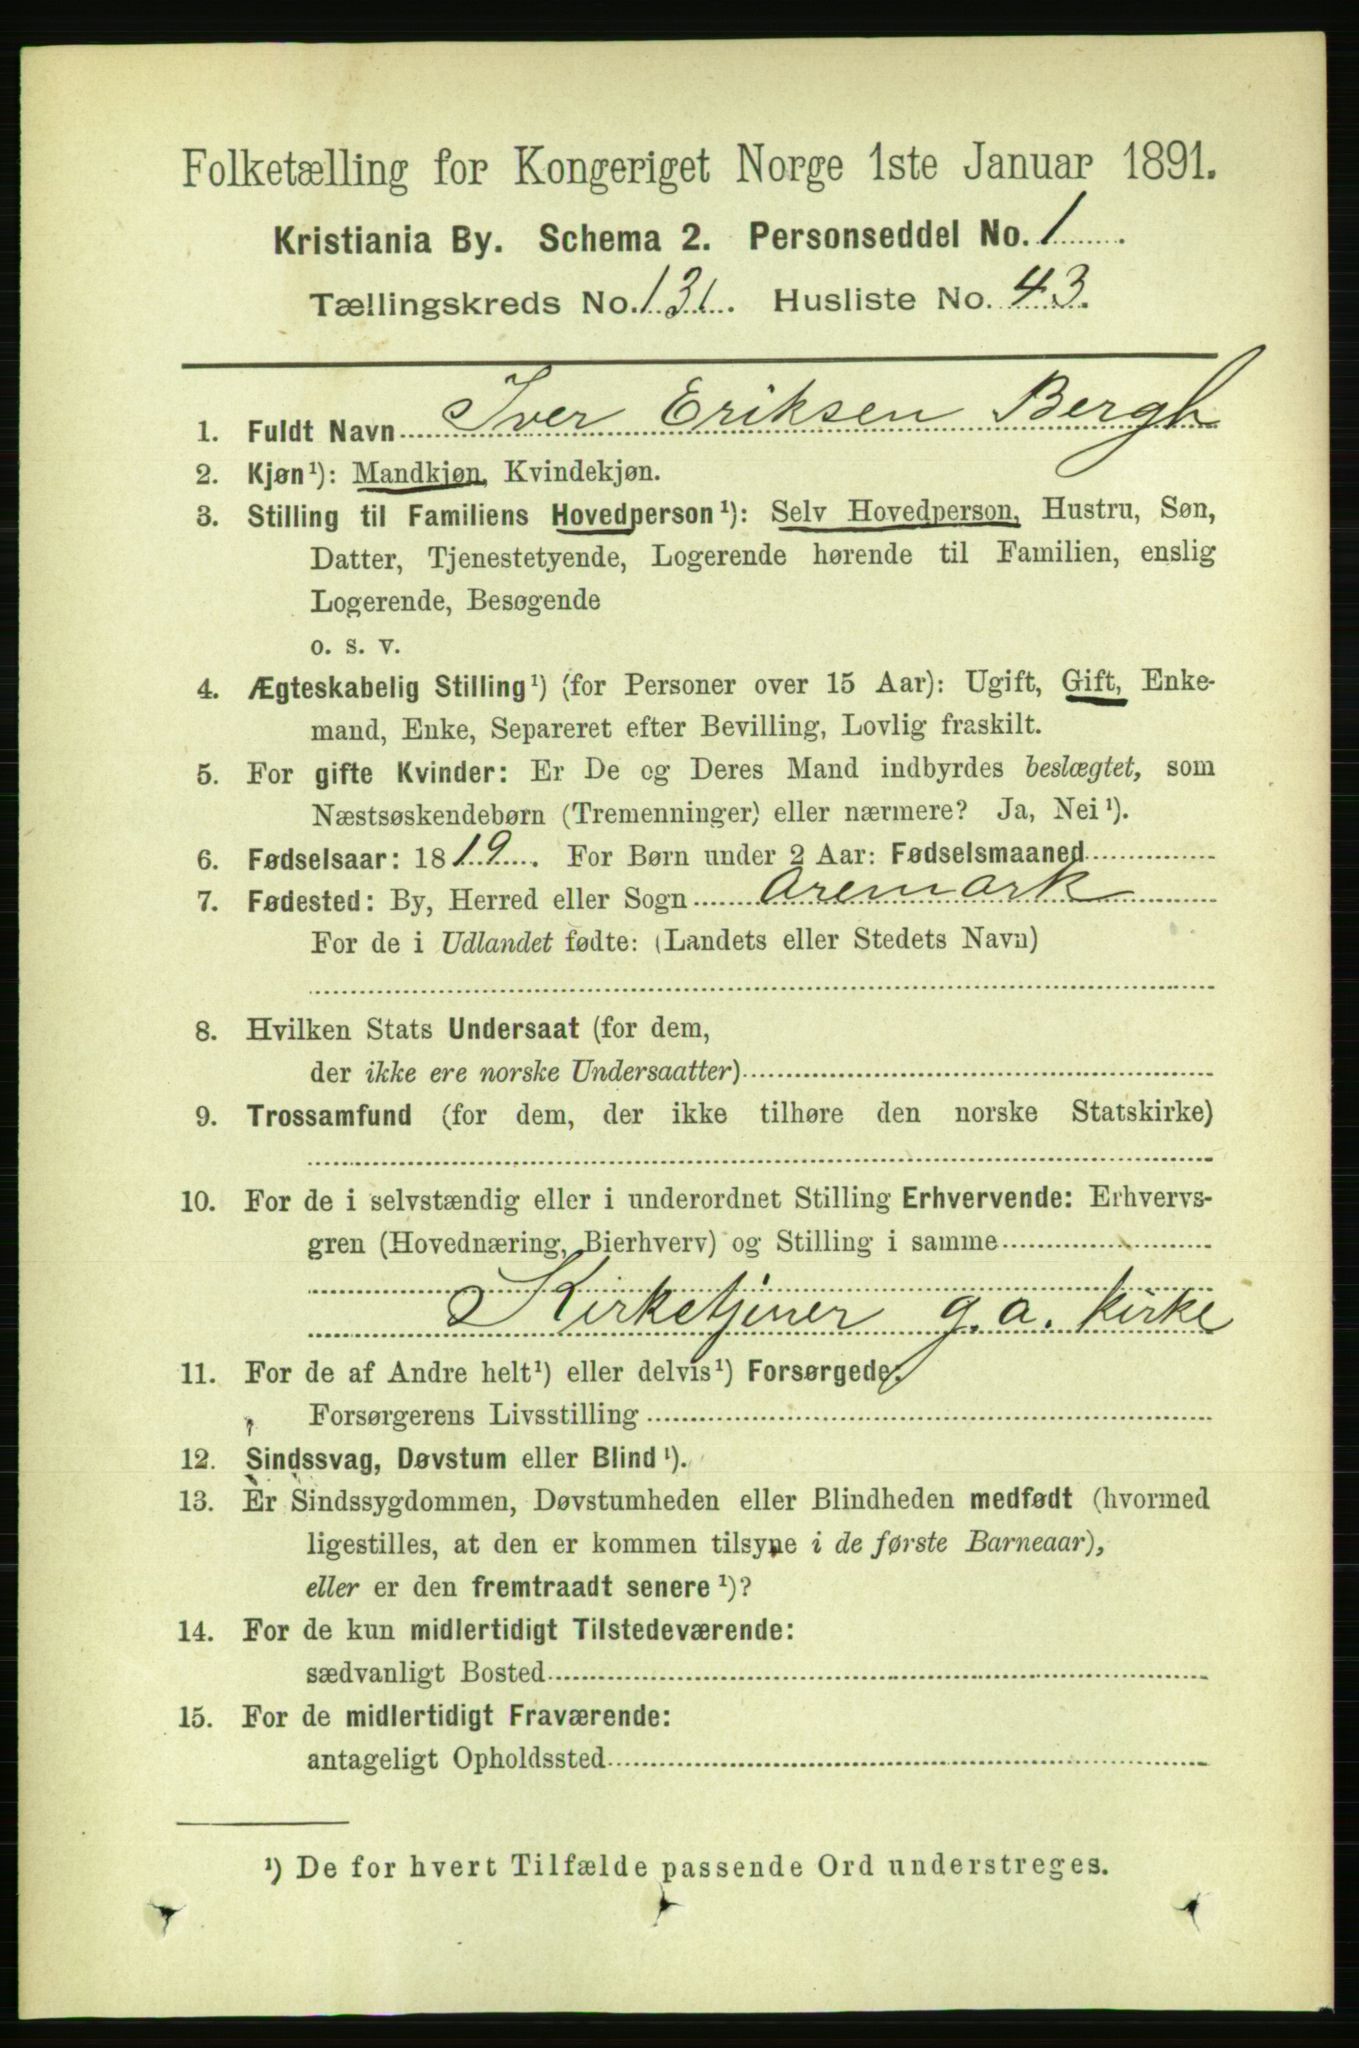 Folketælling for Kongeriget Norge 1ste Januar 1891.
Kristiania By. Schema 2. Personseddel No. 1
Tællingskreds No. 131. Husliste No. 43.
1. Fuldt Navn Iver Eriksen Bergh
2. Kjøn¹): Mandkjøn, Kvindekjøn.
3. Stilling til Familiens Hovedperson¹): Selv Hovedperson, Hustru, Søn,
Datter, Tjenestetyende, Logerende hørende til Familien, enslig
Logerende, Besøgende
o. s. v.
4. Ægteskabelig Stilling¹) (for Personer over 15 Aar): Ugift, Gift, Enke-
mand, Enke, Separeret efter Bevilling, Lovlig fraskilt.
5. For gifte Kvinder: Er De og Deres Mand indbyrdes beslægtet, som
Næstsøskendebørn (Tremenninger) eller nærmere? Ja, Nei¹).
6. Fødselsaar: 1819. For Børn under 2 Aar: Fødselsmaaned
7. Fødested: By, Herred eller Sogn Aremark
For de i Udlandet fødte: (Landets eller Stedets Navn)
8. Hvilken Stats Undersaat (for dem,
der ikke ere norske Undersaatter)
9. Trossamfund (for dem, der ikke tilhøre den norske Statskirke)
10. For de i selvstændig eller i underordnet Stilling Erhvervende: Erhvervs-
gren (Hovednæring, Bierhverv) og Stilling i samme
Kirketjener g. a. kirke
11. For de af Andre helt¹) eller delvis¹) Forsørgede:
Forsørgerens Livsstilling
12. Sindssvag, Døvstum eller Blind¹).
13. Er Sindssygdommen, Døvstumheden eller Blindheden medfødt (hvormed
ligestilles, at den er kommen tilsyne i de første Barneaar),
eller er den fremtraadt senere¹)?
14. For de kun midlertidigt Tilstedeværende:
sædvanligt Bosted
15. For de midlertidigt Fraværende:
antageligt Opholdssted
¹) De for hvert Tilfælde passende Ord understreges.